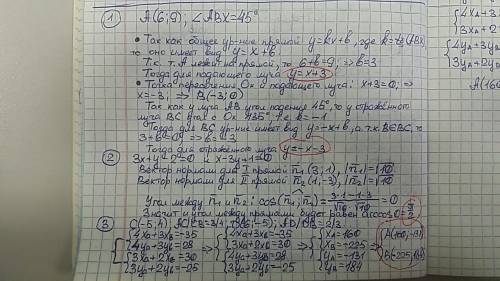 ① A(6;9); ∠ABX=45°
• Так как общее ур-ние прямой y=kx+b, где k=tg(ABX),
то оно имеет вид y=x+b.
Т.к. т. A лежит на прямой, то 6+b=9; ⇒ b=3
Тогда для падающего луча y=x+3
• Точка пересечения Ox и падающего луча: x+3=0; ⇒
x=-3; ⇒ B(-3;0)
Так как у луча AB угол падения 45°, то у отражённого
луча BC угол с Ox 135°, т.е. k=-1
Тогда для BC ур-ние имеет вид y=-x+b, а т.к. B∈BC, то
3+b=0 ⇒ b=-3
Тогда для отражённого луча y=-x-3
② 3x+y-2=0 и x-3y+1=0
Вектор нормали для I прямой n₁(3;1), |n₁|=√10
Вектор нормали для II прямой n₂(1;-3), |n₂|=√10
Угол между n₁ и n₂: cos(n₁;n₂)=(3·1-1·3)/(√10·√10)=0
Значит и угол между прямыми будет равен arccos0=π/2
③ C(-5;4), AC/CB=3/4, D(6;-5), AD/DB=2/3
{4xA+3xB=-35 {4xA+3xB=-35 {xA=160
{4yA+3yB=28 ⇒ {3xA+2xB=30 ⇒ {xB=-225 ⇒ A(160;-131)
{3xA+2xB=30 {4yA+3yB=28 {yA=-131 B(-225;184)
{3yA+2yB=-25 {3yA+2yB=-25 {yB=184
{4xA+3
{3xA+2
{4yA+3y
{3yA+2y
A(160